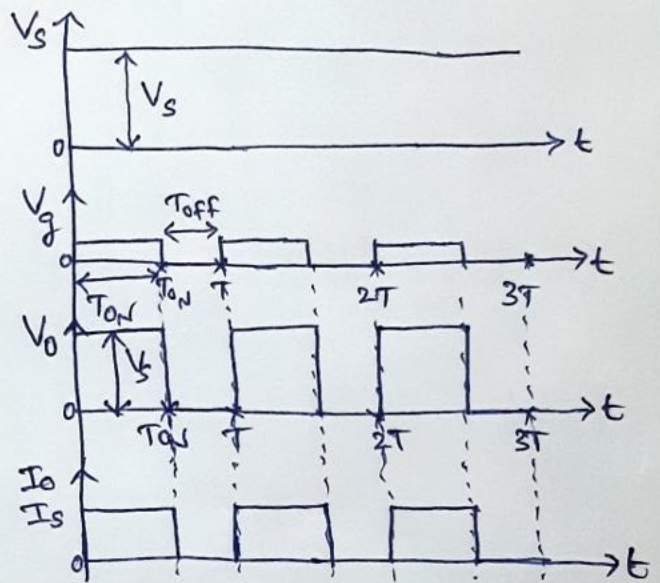 Vs
Vs
0 t
Vg Toff
0 t
TON TON T 2T 3T
Vo Vs
0 t
TON T 2T 3T
Io
Is
0 t